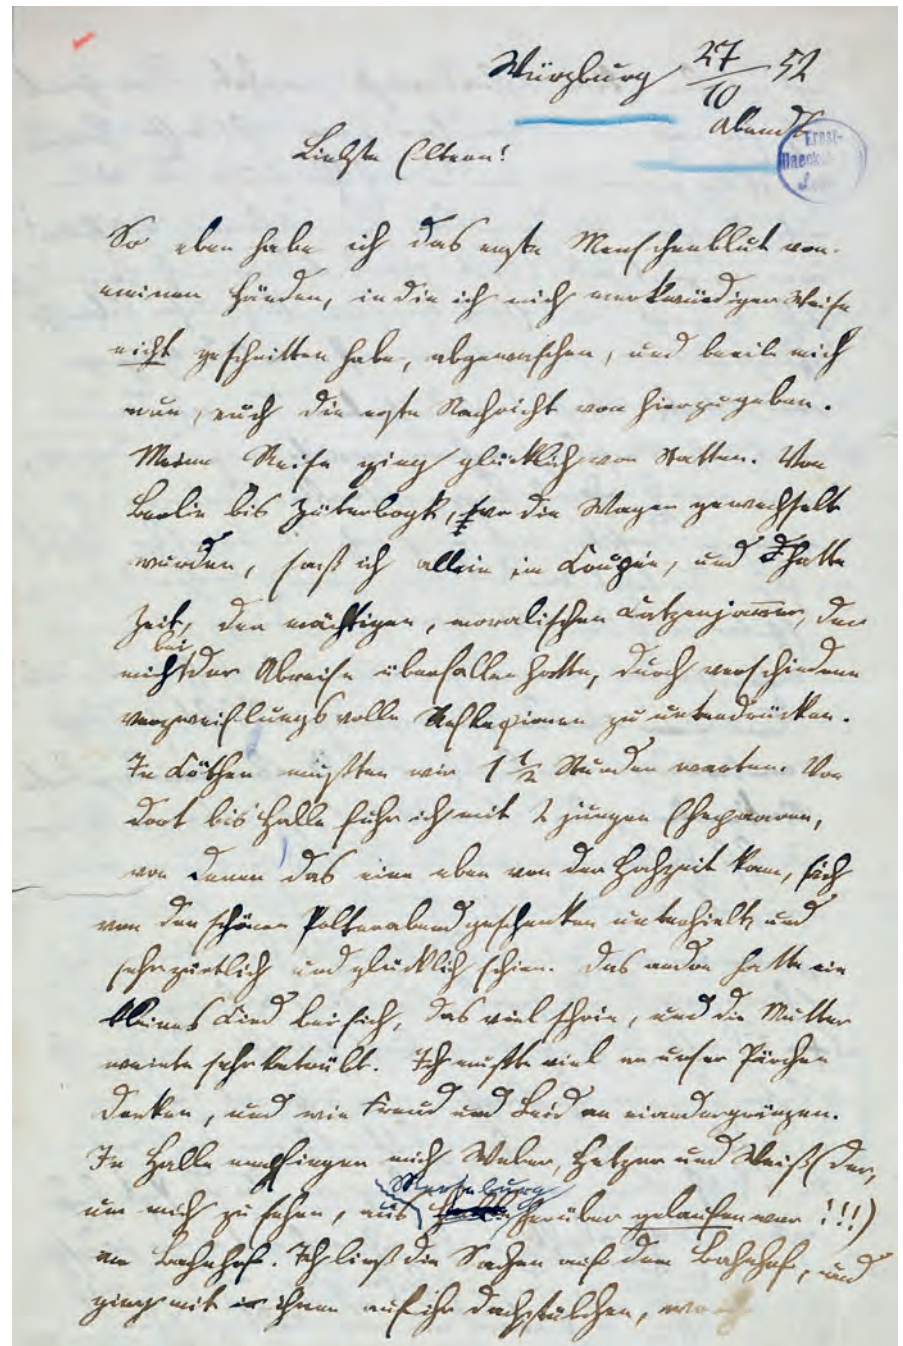 Würzburg 27/10 52
Abends
Ernst-
Haeckel-
Liebste Eltern!
So eben habe ich das erste Menschenblut von
meinen Händen, in die ich mich merkwürdiger Weise
nicht geschnitten habe, abgewaschen, und beeile mich
nun, euch die erste Nachricht von hier zu geben.
Meine Reise ging glücklich von Statten. Von
Berlin bis Jüterbogk, wo die Wagen gewechselt
wurden, saß ich allein im Coupée, und hatte
Zeit, den mächtigen, moralischen Katzenjammer, der
mich bei der Abreise überfallen hatte, durch verschiedene
verzweiflungsvolle Reflexionen zu unterdrücken.
In Cöthen mußten wir 1 1/2 Stunden warten. Von
dort bis Halle fuhr ich mit 2 jungen Ehepaaren,
von denen das eine eben von der Hochzeit kam, sich
von den schönen Polterabendgeschenken unterhielt und
sehr zärtlich und glücklich schien. Das andre hatte ein
kleines Kind bei sich, das viel schrie, und die Mutter
weinte sehr betrübt. Ich mußte viel an unser Pärchen
denken, und wie Freud und Leid an einander gränzen.
In Halle empfingen mich Weber, Hetzer und Weiß (der,
um mich zu sehen, aus Merseburg herüber gelaufen war!!!)
am Bahnhof. Ich ließ die Sachen auf dem Bahnhof, und
ging mit ihnen auf ihr Dachstübchen, wo